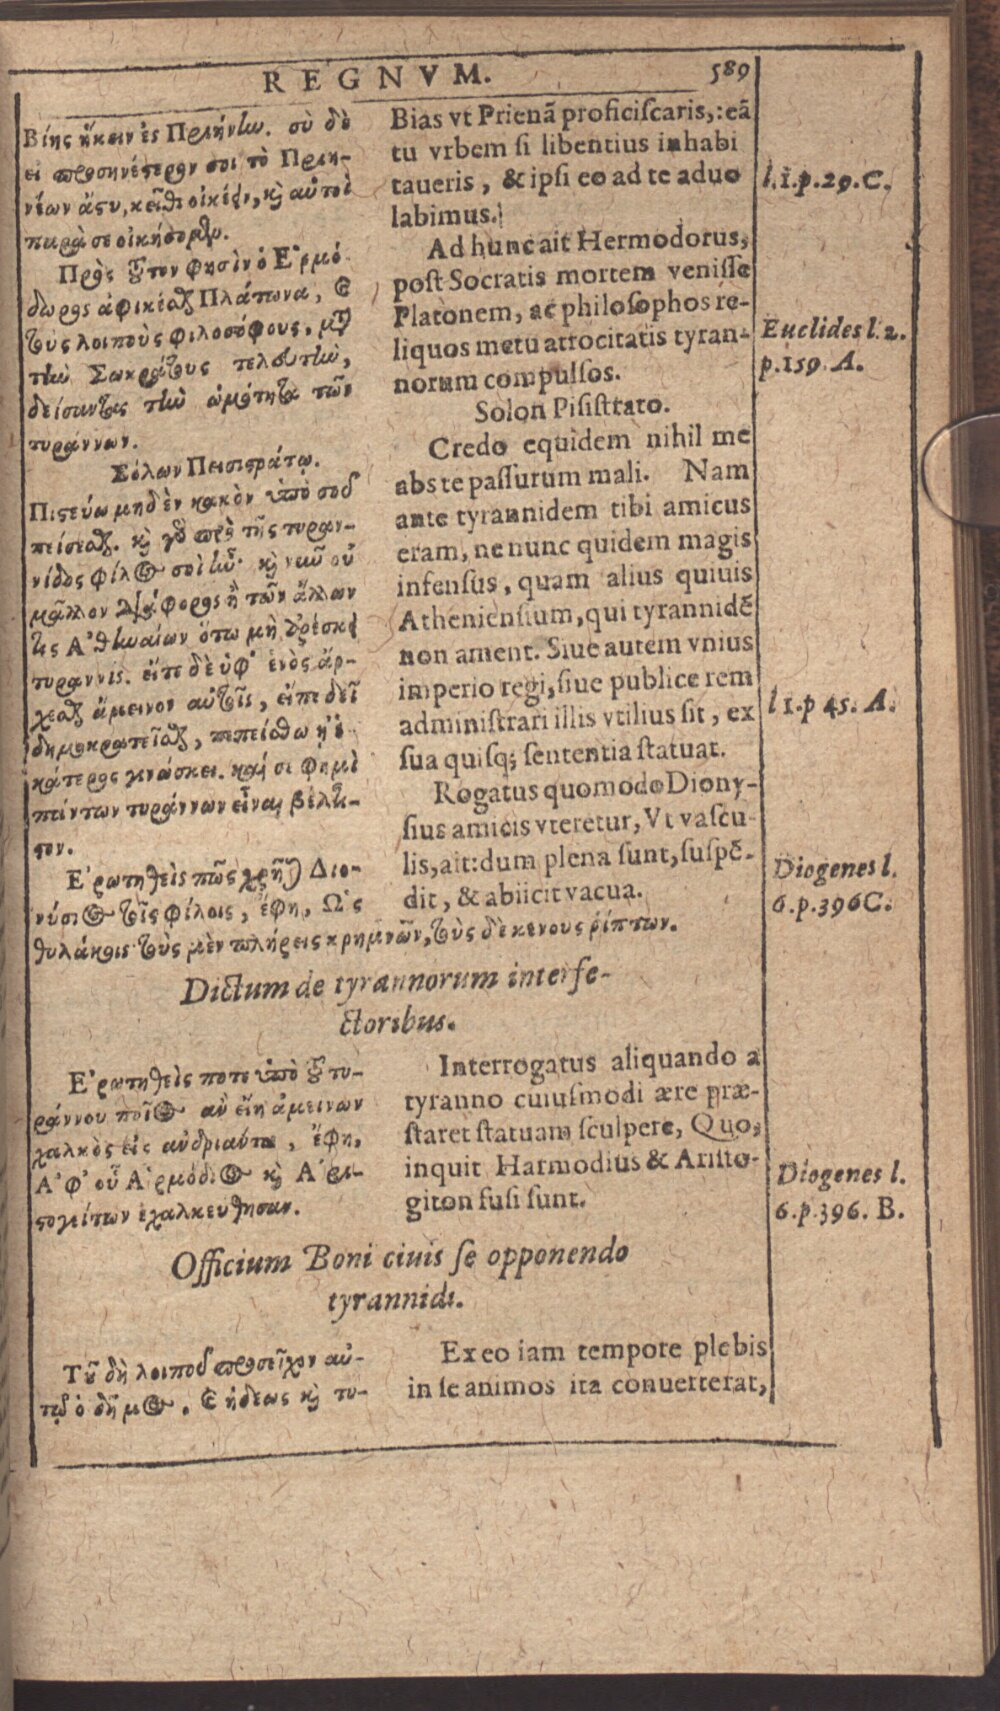 REGNVM. 589
Βίης ἥκειν ἐς Πριήνην. σὺ δὲ
εἰ προσηνέστερόν σοι τὸ Πριη-
νέων ἄστυ, κεῖθι οἰκέειν, καὶ αὐτοὶ
παρὰ σε οἰκήσομεν.
Πρὸς τοῦτον φησὶν ὁ Ἑρμό-
δωρος ἀφικέσθαι Πλάτωνα, καὶ
τοὺς λοιποὺς φιλοσόφους, μετὰ
τὴν Σωκράτους τελευτὴν,
δείσαντας τὴν ὠμότητα τῶν
τυράννων.
Σόλων Πεισιστράτῳ.
Πιστεύω μηδὲν κακὸν ὑπὸ σοῦ
πείσεσθαι. καὶ γὰρ πρὸ τῆς τυραν-
νίδος φίλος σοὶ ἦν· καὶ νῦν οὐ
μᾶλλον διάφορος ἢ τῶν ἄλλων
τις Ἀθηναίων ὅτῳ μὴ ἀρέσκει
τυραννίς. εἴτε δὲ ὑφ' ἑνὸς ἄρ-
χεσθαι ἄμεινον αὐτοῖς, εἴτε δεῖ
δημοκρατεῖσθαι, πεπείσθω ᾗ ἑ-
κάτερος γινώσκει. καὶ σὲ φημὶ
πάντων τυράννων εἶναι βέλτι-
στον.
Ἐρωτηθεὶς πῶς χρῆται Διο-
νύσιος τοῖς φίλοις, ἔφη, Ὡς
θυλάκοις· τοὺς μὲν πλήρεις κρημνῶν, τοὺς δὲ κενους ῥίπτων.
Bias vt Prienã proficiscaris,:eã
tu vrbem si libentius inhabi
taueris, & ipsi eo ad te aduo
labimus.
Ad hunc ait Hermodorus,
post Socratis mortem venisse
Platonem, ac philosophos re-
liquos metu atrocitatis tyran-
norum compulsos.
Solon Pisistrato.
Credo equidem nihil me
abs te passurum mali. Nam
ante tyrannidem tibi amicus
eram, ne nunc quidem magis
infensus, quam alius quiuis
Atheniensium, qui tyrannidẽ
non ament. Siue autem vnius
imperio regi, siue publice rem
administrari illis vtilius sit, ex
sua quisq; sententia statuat.
Rogatus quomodo Diony-
sius amicis vteretur, Vt vascu-
lis, ait: dum plena sunt, suspẽ-
dit, & abiicit vacua.
l.1.p.29.C.
Euclides l.2.
p.159. A.
l 1.p 45. A.
Diogenes l.
6.p.396C.
Dictum de tyrannorum interfe-
ctoribus.
Ἐρωτηθεὶς ποτε ὑπὸ τοῦ τυ-
ράννου ποῖος ἂν εἴη ἀμείνων
χαλκὸς εἰς ἀνδριάντα, ἔφη,
Ἀφ' οὗ Ἁρμόδιος καὶ Ἀρι-
στογείτων ἐχαλκευθησαν.
Interrogatus aliquando a
tyranno cuiusmodi ære præ-
staret statuam sculpere, Quo,
inquit Harmodius & Aristo-
giton fusi sunt.
Diogenes l.
6.p.396. B.
Officium Boni ciuis se opponendo
tyrannidi.
Τοῦ δὴ λοιποῦ προσεῖχον αὐ-
τῷ ὁ δῆμος. καὶ ἡδέως καὶ τυ-
Ex eo iam tempore plebis
in se animos ita conuerterat,